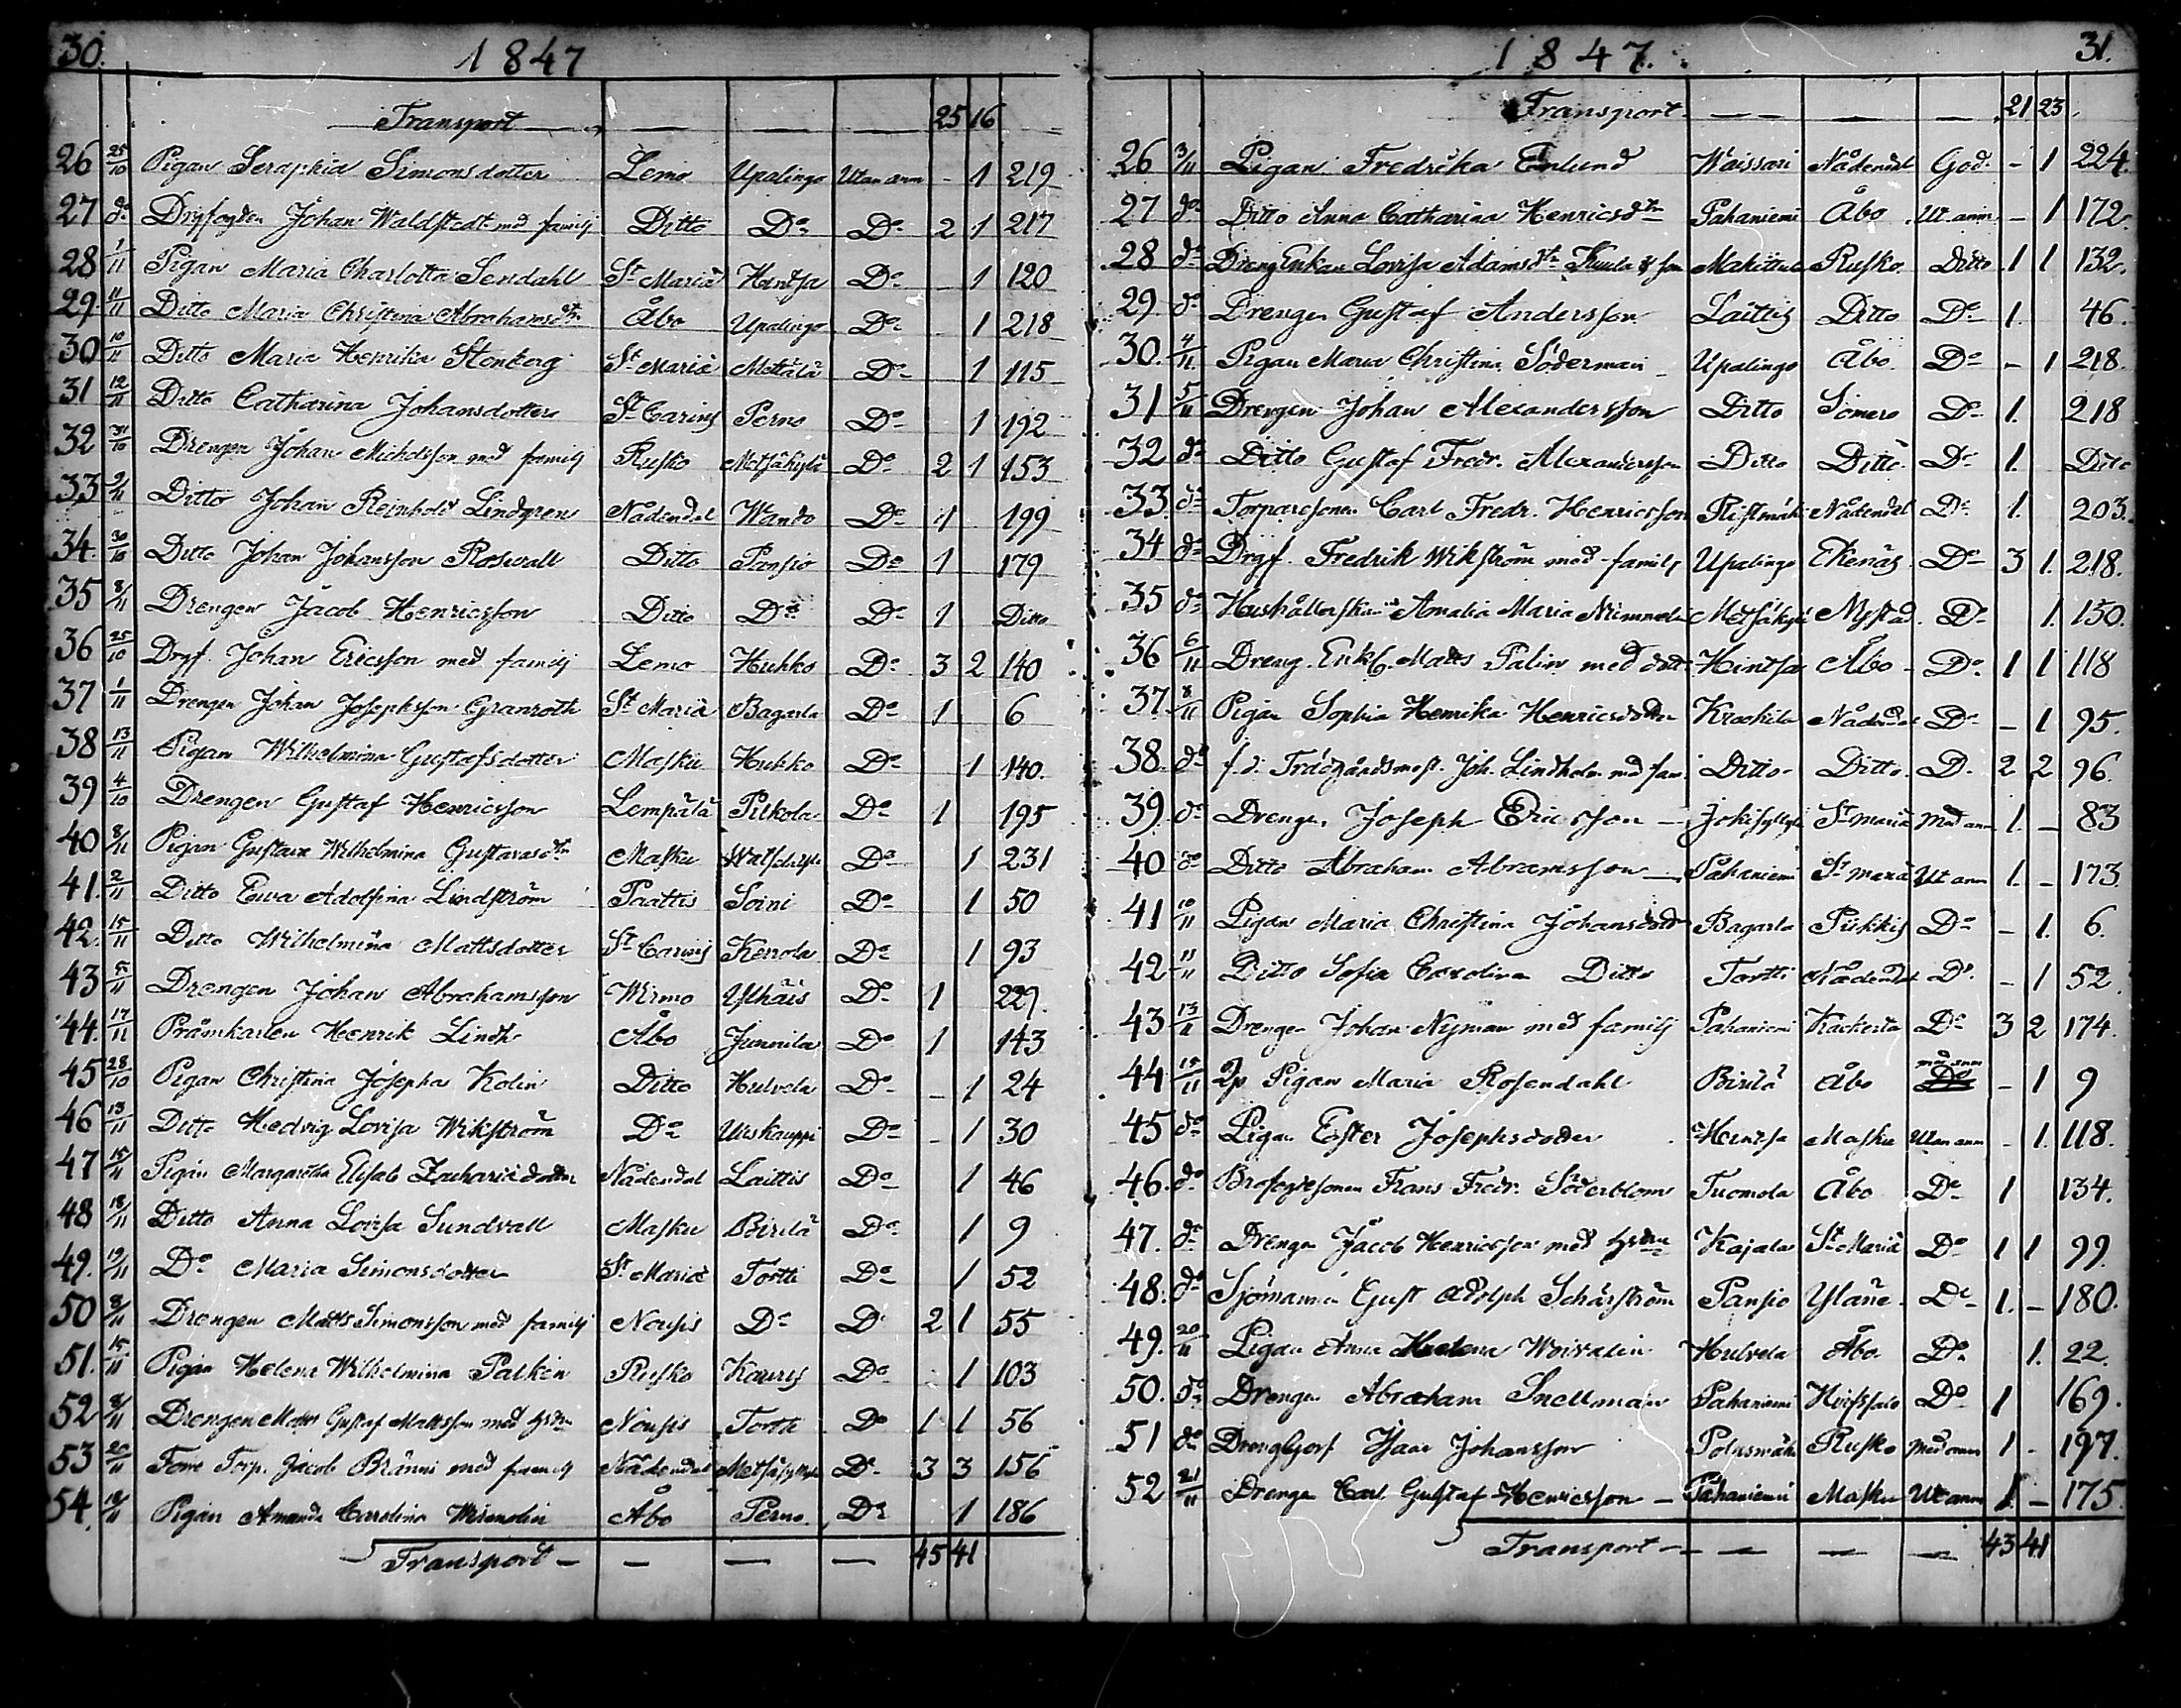 30.
1847
Transport — — — 25 16
26 25/10 Pigan Seraphia Simonsdotter Lemo Upalingo Utan anm - 1 219
27 do Dryffogden Johan Waldstedt med familj Ditto Do Do 2 1 217
28 1/11 Pigan Maria Charlotta Sendahl St Mariæ Hintsa Do - 1 120
29. 11/11 Ditto Maria Christina Abrahamsdtr Åbo Upalingo Do 1 218
30 10/11 Ditto Maria Henrika Stenberg St Mariæ Mettälä Do 1 115
31 12/11 Ditto Catharina Johansdotter St Carins Perno Do 1 192
32 31/10 Drengen Johan Michelsson med familj Rusko Metsäkylä Do 2 1 153
33 2/11 Ditto Johan Reinhold Lindgren Nådendal Wando Do 1 199
34. 30/10 Ditto Johan Johansson Roswall Ditto Pansio Do 1 179
35 8/11 Drengen Jacob Henricsson Ditto Do Do 1 Ditto
36 25/10 Dryf. Johan Ericsson med familj Lemo Huhko Do 3 2 140
37 1/11 Drengen Johan Josephsson Granroth St Mariæ Bagarla Do 1 6
38 13/11 Pigan Wilhelmina Gustafsdotter Masku Hukko Do 1 140.
39 4/10 Drengen Gustaf Henricsson Lempälä Pitkola Do 1 195
40 8/11 Pigan Gustava Wilhelmina Gustavasdtr Masku Do 1 231
41. 2/11 Ditto Ewa Adolfina Lindström Paattis Soini Do 1 50
42. 15/11 Ditto Wilhelmina Mattsdotter St Carins Kerrola Do 1 93
43 5/11 Drengen Johan Abrahamsson Wirmo Ylhäis Do 1 229.
44. 17/11 Pråmkarlen Henrik Lindh Åbo Junnila Do 1 143
45 28/10 Pigan Christina Josepha Kolin Ditto Hulvela Do - 1 24
46 13/11 Ditto Hedvig Lovisa Wikström Do Uuskauppi Do - 1 30
47 15/11 Pigan Margaretha Elisab Zachariædotter Nådendal Laittis Do 1 46
48 18/11 Ditto Anna Lovisa Sundvall Masku Birilä Do 1 9
49. 19/11 Do Maria Simonsdotter St Mariæ Tortti Do 1 52
50 8/11 Drengen Matts Simonsson med familj Nousis Do Do 2 1 55
51. 15/11 Pigan Helena Wilhelmina Palkén Rusko Kauris Do 1 103
52 8/11 Drengen Matts Gustaf Mattsson med hstru Nousis Tortti Do 1 1 56
53 20/11 Torp. Jacob Bränni med familj Nådendal Do 3 3 156
54. 18/11 Pigan Amanda Carolina Wirmolin Åbo Perno Do 1 186
Transport — — — — 45 41
31.
1847.
Transport — — — 21 23.
26 3/11 Pigan Fredrika Enlund Waissari Nådendal God. - 1 224.
27 do Ditto Anna Catharina Henricsdtr Pahaniemi Åbo Ut. anm - 1 172.
28 do DrengEnkan Lovisa Adamsdtr Kuula & son Makittula Rusko Ditto 1 1 132.
29. do Drengen Gustaf Andersson Laittis Ditto Do 1. 46.
30. 4/11 Pigan Maria Christina Söderman Upalingo Åbo. Do - 1 218.
31 5/11 Drengen Johan Alexandersson Ditto Somero Do 1. 218
32 do Ditto Gustaf Fredr. Alexandersson Ditto Ditto Do 1. Ditto
33. do Torparesonen Carl Fredr. Henricsson Ristimäki Nådendal Do 1. 203.
34 do Dryf. Fredrik Wikström med familj Upalingo Ekenäs Do 3 1. 218.
35 do Hushållerskan Amalia Maria Nummelin Metsäkylä Nystad. Do 1. 150.
36 6/11 Dreng. Enkl. Matts Palin med dott. Hintsa Åbo Do 1 1 118
37. 8/11 Pigan Sophia Henrika Henricsdotter Kraokila Nådendal Do - 1 95.
38. do f.d. Trädgårdsmäst. Joh. Lindholm med fam. Ditto Ditto. D. 2 2 96.
39. do Drengen Joseph Ericsson St Mariæ Med anm 1. - 83
40 do Ditto Abraham Abramsson Pahaniemi St Mariæ Ut anm 1. - 173.
41 10/11 Pigan Maria Christina Johansdotr Bagarla Piikkis Do - 1. 6.
42 11/11 Ditto Sofia Carolina Ditto Tortti Nådendal Do. - 1 52.
43 13/11 Drengen Johan Nyman med familj Pahaniemi Kackerta Do 3 2 174.
44 15/11 Pigan Maria Rosendahl Birilä Åbo med anm - 1 9
45 do Pigan Ester Josephsdotter Hintsa Masku Utan anm - 1. 118.
46. do Brofogdesonen Frans Fredr. Söderblom Tuomola Åbo Do 1 134.
47. do Drengen Jacob Henricsson med hstru Kajala St Mariæ Do 1 1 99.
48. do Sjömannen Gust Adolph Schärström Pansio Yläne Do 1. - 180.
49. 20/11 Pigan Anna Helena Woivalin Hulvela Åbo. Do. 1. 22.
50. do Drengen Abraham Snellman Pahaniemi Do 1 169.
51 do Isaac Johansson Polusmäki Rusko Med anm 1 - 197.
52 21/11 Drengen Carl Gustaf Henricsson — Pahaniemi Masku Ut anm 1 - 175.
Transport — — — — 43 41